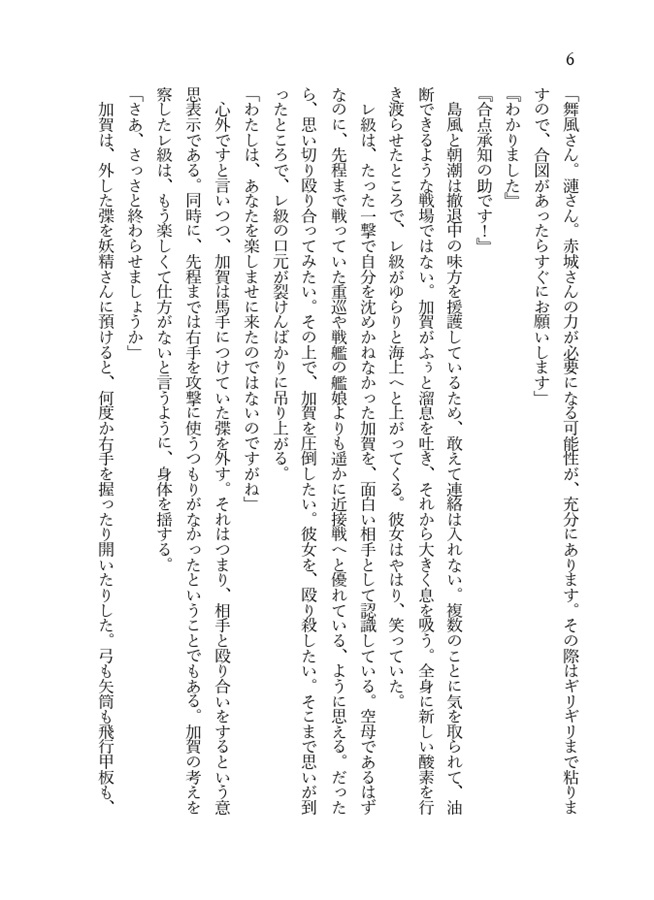 6
「舞風さん。漣さん。赤城さんの力が必要になる可能性が、充分にあります。その際はギリギリまで粘りま
すので、合図があったらすぐにお願いします」
『わかりました』
『合点承知の助です！』
島風と朝潮は撤退中の味方を援護しているため、敢えて連絡は入れない。複数のことに気を取られて、油
断できるような戦場ではない。加賀がふぅと溜息を吐き、それから大きく息を吸う。全身に新しい酸素を行
き渡らせたところで、レ級がゆらりと海上へと上がってくる。彼女はやはり、笑っていた。
レ級は、たった一撃で自分を沈めかねなかった加賀を、面白い相手として認識している。空母であるはず
なのに、先程まで戦っていた重巡や戦艦の艦娘よりも遥かに近接戦へと優れている、ように思える。だった
ら、思い切り殴り合ってみたい。その上で、加賀を圧倒したい。彼女を、殴り殺したい。そこまで思いが到
ったところで、レ級の口元が裂けんばかりに吊り上がる。
「わたしは、あなたを楽しませに来たのではないのですがね」
心外ですと言いつつ、加賀は馬手につけていた弽を外す。それはつまり、相手と殴り合いをするという意
思表示である。同時に、先程までは右手を攻撃に使うつもりがなかったということでもある。加賀の考えを
察したレ級は、もう楽しくて仕方がないと言うように、身体を揺する。
「さあ、さっさと終わらせましょうか」
加賀は、外した弽を妖精さんに預けると、何度か右手を握ったり開いたりした。弓も矢筒も飛行甲板も、